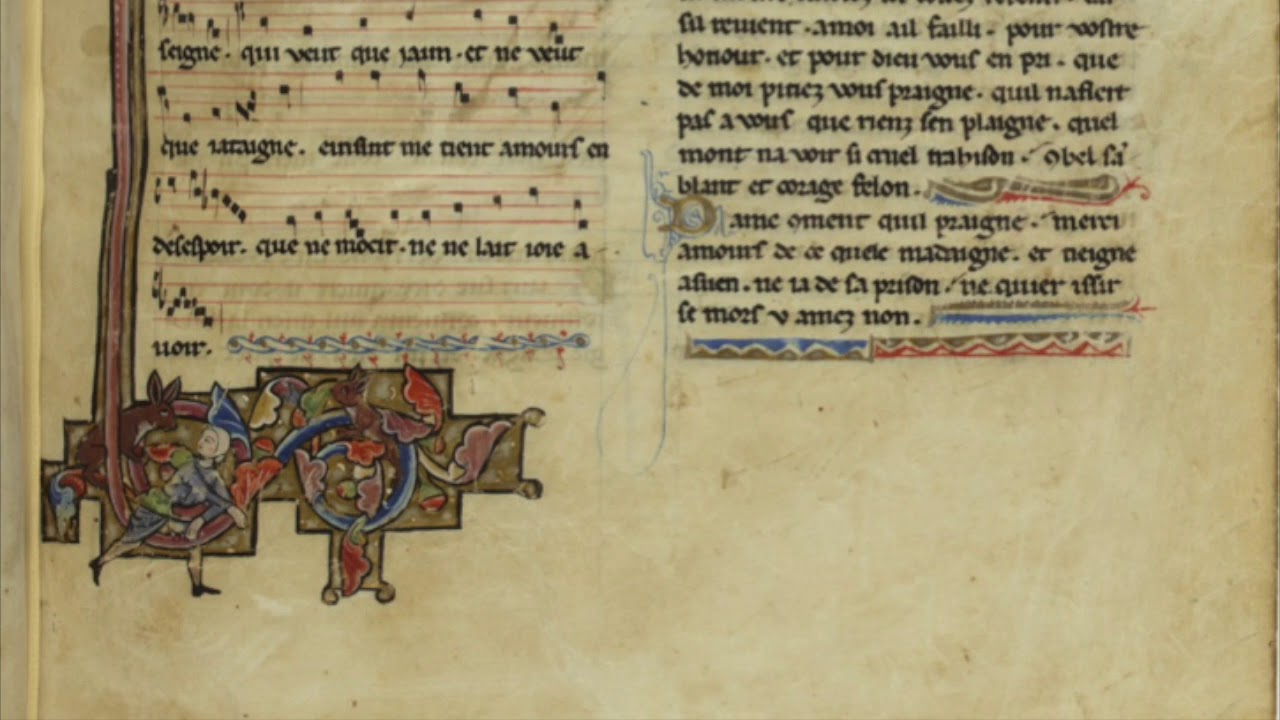 seigne. qui veut que iaim. et ne veut
que iataigne. einsint me tient amours en
desespoir. que ne mocit. ne ne lait ioie a
uoir.
sa reuient. amoi ail failli. pour vostre
honour. et pour dieu vous en pri. que
de moi pitiez vous praigne. quil nafiert
pas a vous que rienz sen plaigne. quel
mont na voir si cruel trahison. Qbel sa
blant et corage felon.
Dame oment quil praigne. merci
amours de ce quele madaigne. et tieigne
asuen. ne ia de sa prison. ne quier issir
se mors v amez non.